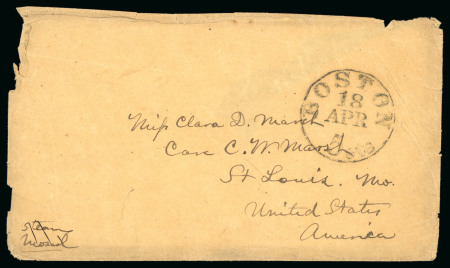 BOSTON
18
APR
Miss Clara D. Marsh
Care C. W. Marsh
St Louis. Mo.
United States
America
Steam